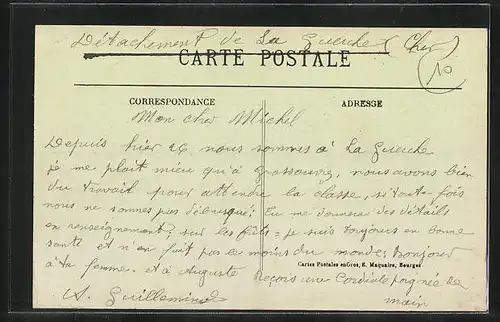 Détachement de La Guerche (Cher)
10
CARTE POSTALE
CORRESPONDANCE
ADRESSE
Mon cher Michel
Depuis hier 26 nous sommes à La Guerche
je me plait mieu qu'à Grossouvre, nous avons bien
du travail pour attendre la classe, si toute fois
nous ne sommes pas débusqué. Tu me donneras des détails
en renseignement, sur les fûts = je suis toujours en bonne
santé et n'en fuit pas le moins du monde. Bonjour
Cartes Postales en Gros, E. Maquaire, Bourges
à ta femme. et à Auguste Reçois une Cordiale poignée de
main
A. Guilleminot